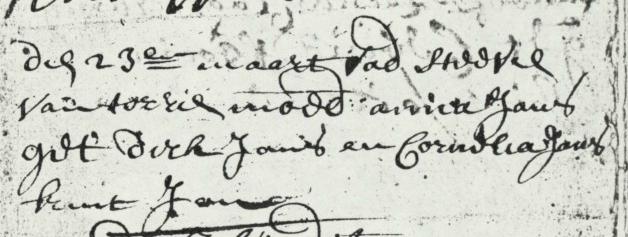 den 23en maart vad Steeven
van torren moed annita Jans
get Dirk Jans en Cornelia Jans
kint Jan